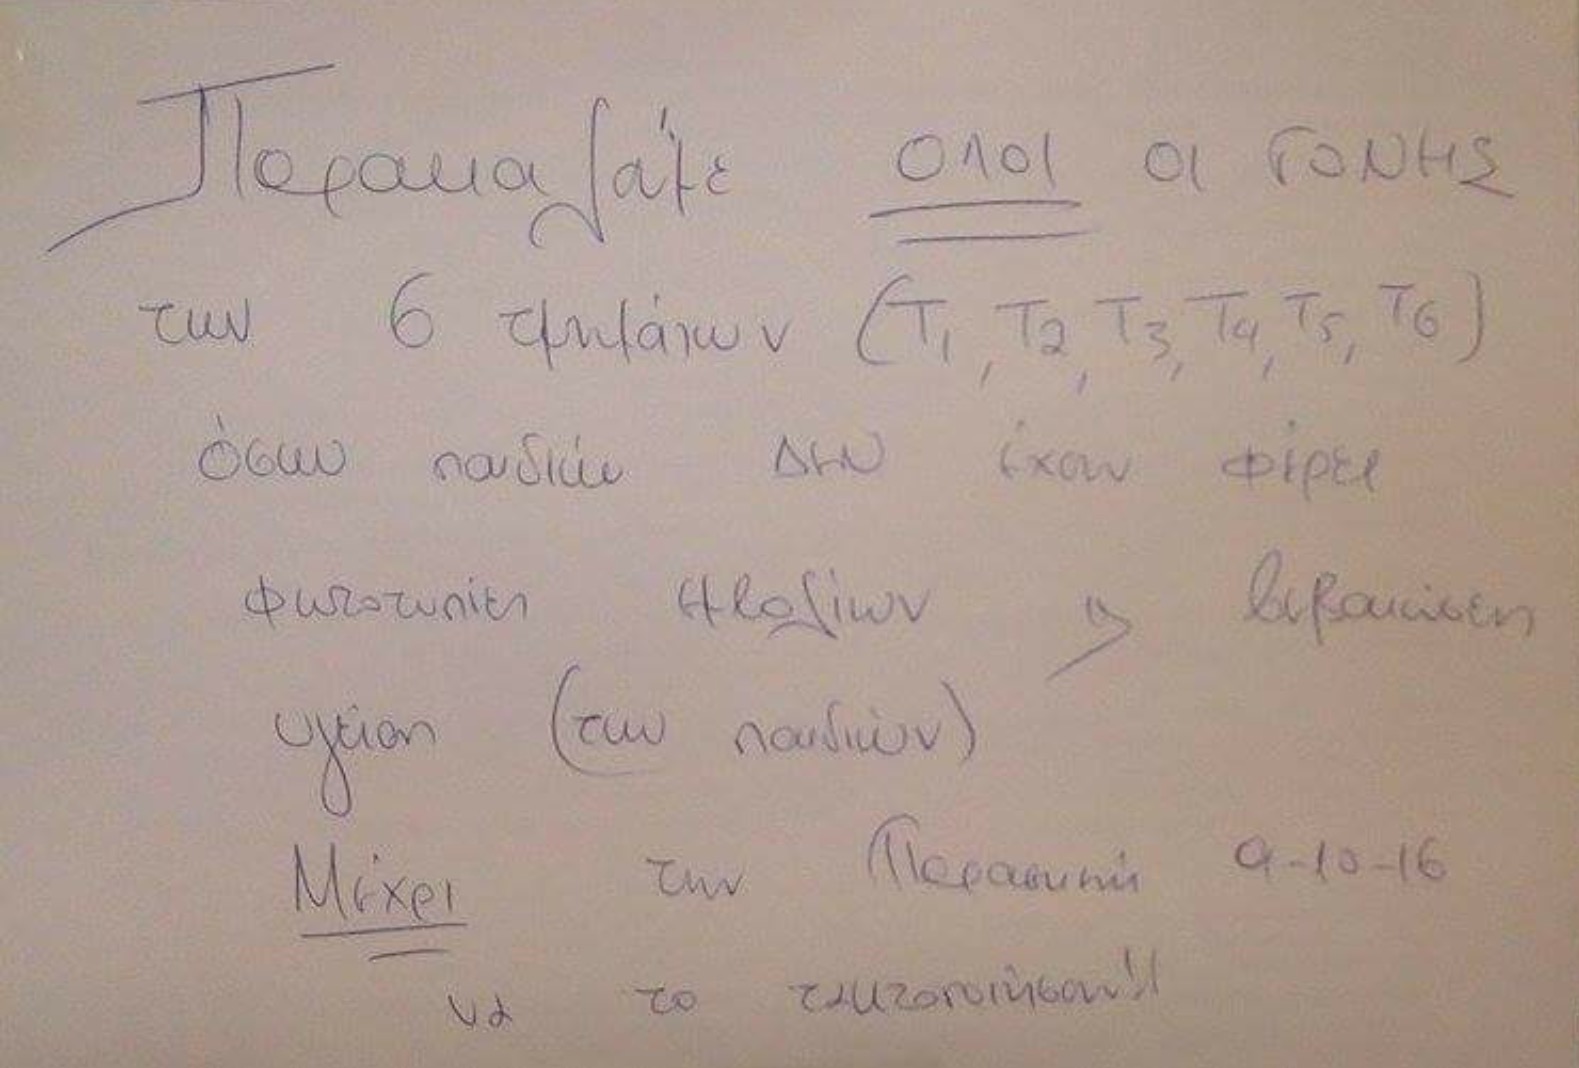 Παρακαλάμε ΟΛΟΙ ΟΙ ΓΟΝΗΣ
των 6 τμημάτων (T1, T2, T3, T4, T5, T6)
όσων παιδιών ΔΕΝ έχουν φέρει
φωτοτυπίες εμβολίων βεβαιώσεις
υγείας (των παιδιών)
Μέχρι την Παρασκευή 9-10-16
να το τακτοποιήσουν!!